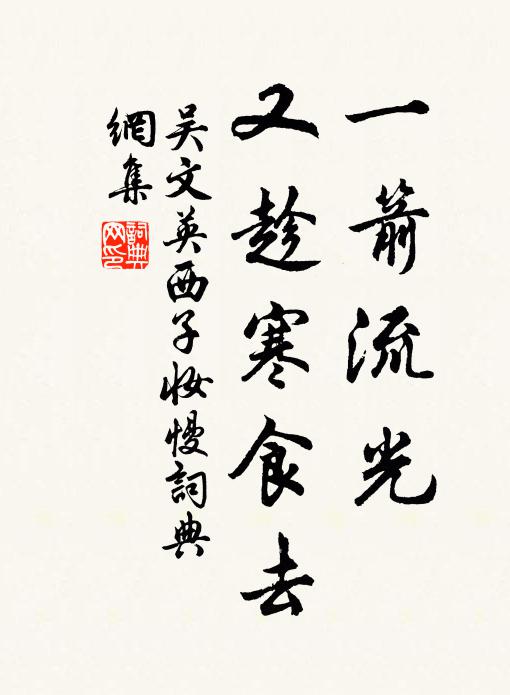 一箭流光
又趁寒食去
吴文英西子妆慢詞典
網集
詞典网印